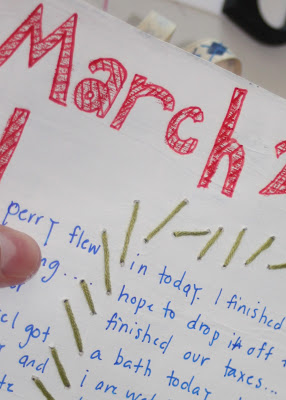 March 2
perry flew in today. I finished
hope to drop it off
got finished our taxes...
and a bath today
i are